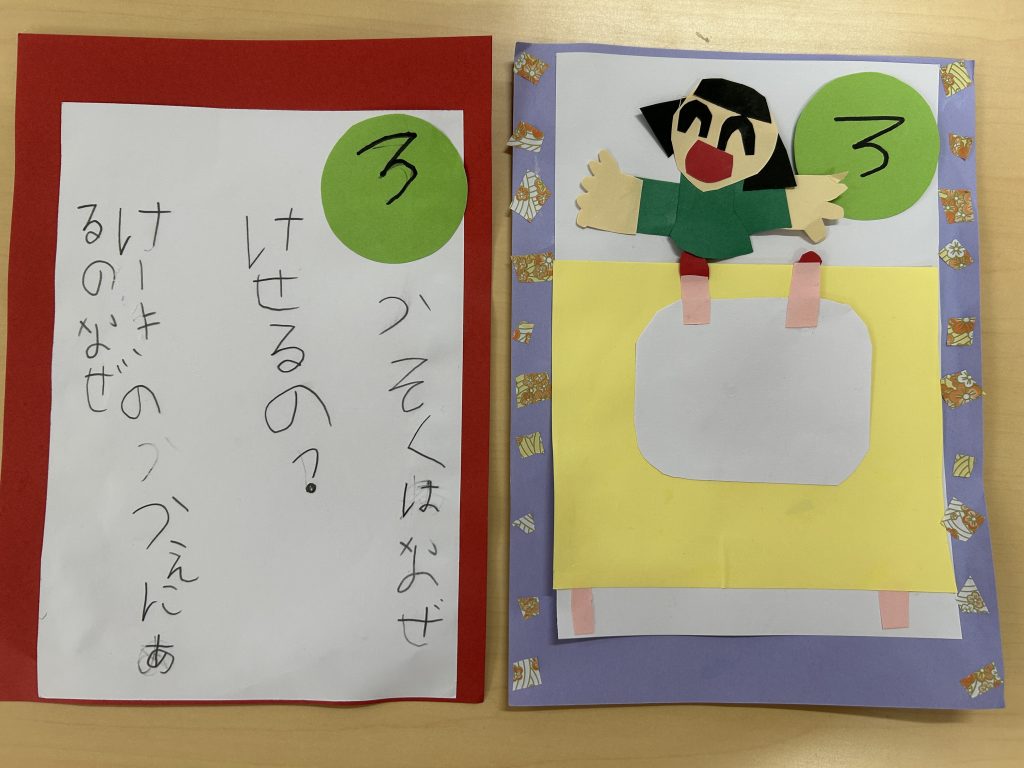 ろ
うそくはなぜ
けせるの?
けーきのうえにあ
るのなぜ
ろ